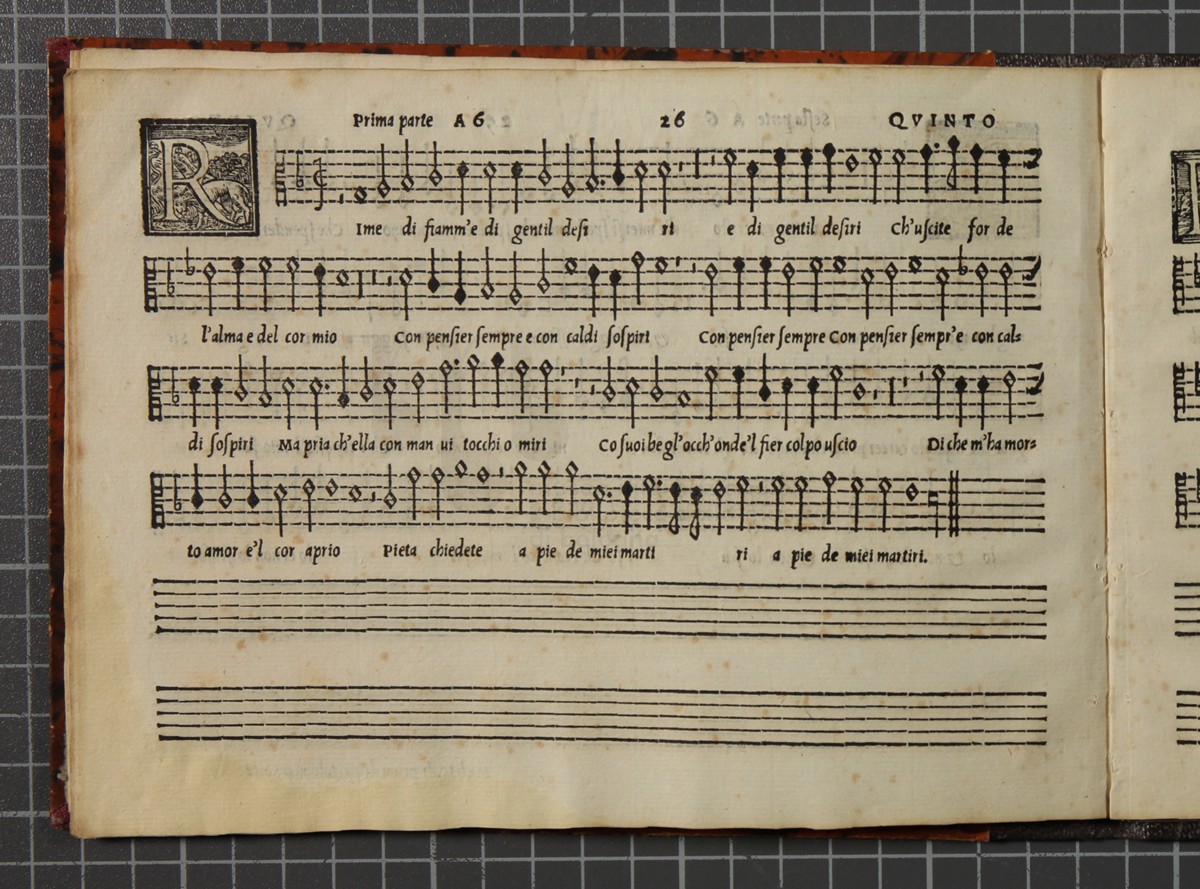 Prima parte A 6 26 QVINTO
R
Ime di fiamm'e di gentil desi ri e di gentil desiri Ch'uscite for de
l'alma e del cor mio Con pensier sempre e con caldi sospiri Con pensier sempre Con pensier semp'r'e con cal=
di sospiri Ma pria ch'ella con man ui tocchi o miri Co suoi be gl'occh'onde'l fier colpo uscio Di che m'ha mor=
to amor e'l cor aprio Pieta chiedete a pie de miei marti ri a pie de miei martiri.